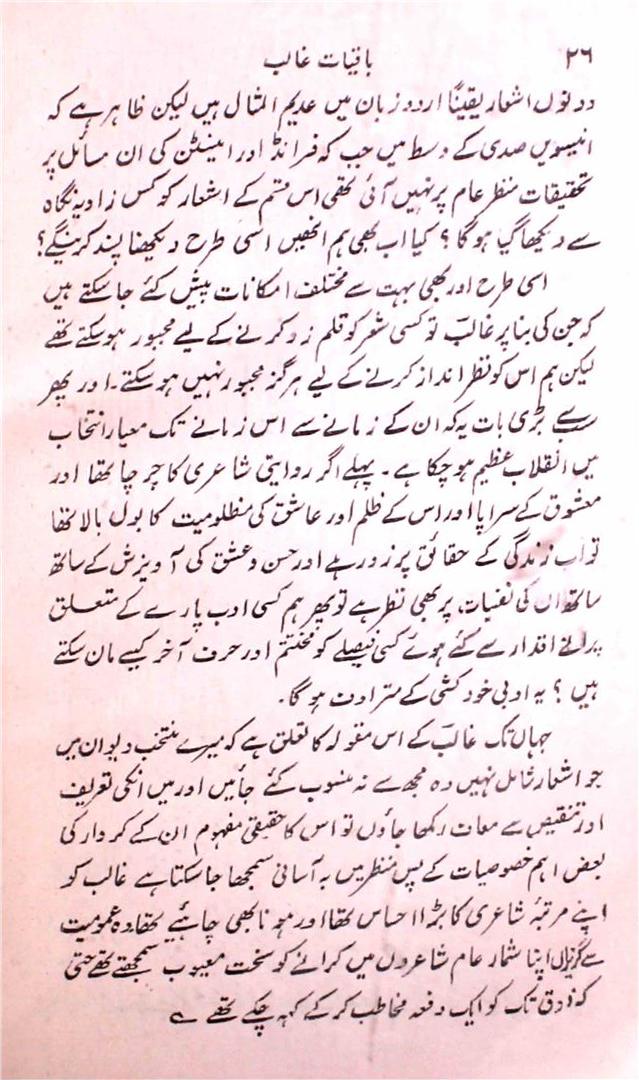 ۲۶ باقیات غالب
دونوں اشعار یقیناً اردو زبان میں عدیم المثال ہیں لیکن ظاہر ہے کہ
انیسویں صدی کے وسط میں جب کہ فرائڈ اور اینسٹن کی ان مسائل پر
تحقیقات منظر عام پر نہیں آئی تھی اس قسم کے اشعار کو کس زاویہ نگاہ
سے دیکھا گیا ہوگا ؟ کیا اب بھی ہم انھیں اسی طرح دیکھنا پسند کرینگے؟
اسی طرح اور بھی بہت سے مختلف امکانات پیش کئے جا سکتے ہیں
کہ جن کی بنا پر غالبؔ تو کسی شعر کو قلم زد کرنے کے لیے مجبور ہو سکتے تھے
لیکن ہم اس کو نظر انداز کرنے کے لیے ہرگز مجبور نہیں ہو سکتے۔ اور پھر
سب سے بڑی بات یہ کہ ان کے زمانے سے اس زمانے تک معیار انتخاب
میں انقلاب عظیم ہو چکا ہے۔ پہلے اگر روایتی شاعری کا چرچا تھا اور
معشوق کے سراپا اور اس کے ظلم اور عاشق کی مظلومیت کا بول بالا تھا
تو اب زندگی کے حقائق پر زور ہے اور حسن و عشق کی آویزش کے ساتھ
ساتھ ان کی نفسیات پر بھی نظر ہے تو پھر ہم کسی ادب پارے کے متعلق
پرانے اقدار سے کئے ہوئے کسی فیصلے کو مختتم اور حرف آخر کیسے مان سکتے
ہیں ؟ یہ ادبی خودکشی کے مترادف ہوگا۔
جہاں تک غالبؔ کے اس مقولہ کا تعلق ہے کہ میرے منتخب دیوان میں
جو اشعار شامل نہیں وہ مجھ سے نہ منسوب کئے جائیں اور میں انکی تعریف
اور تنقیص سے معاف رکھا جاؤں تو اس کا حقیقی مفہوم ان کے کردار کی
بعض اہم خصوصیات کے پس منظر میں بہ آسانی سمجھا جا سکتا ہے غالب کو
اپنے مرتبۂ شاعری کا بڑا احساس تھا اور ہونا بھی چاہئیے تھا وہ عمومیت
سے گریزاں اپنا شمار عام شاعروں میں کرانے کو سخت معیوب سمجھتے تھے حتیٰ
کہ ذوق تک کو ایک دفعہ مخاطب کر کے کہہ چکے تھے ؎